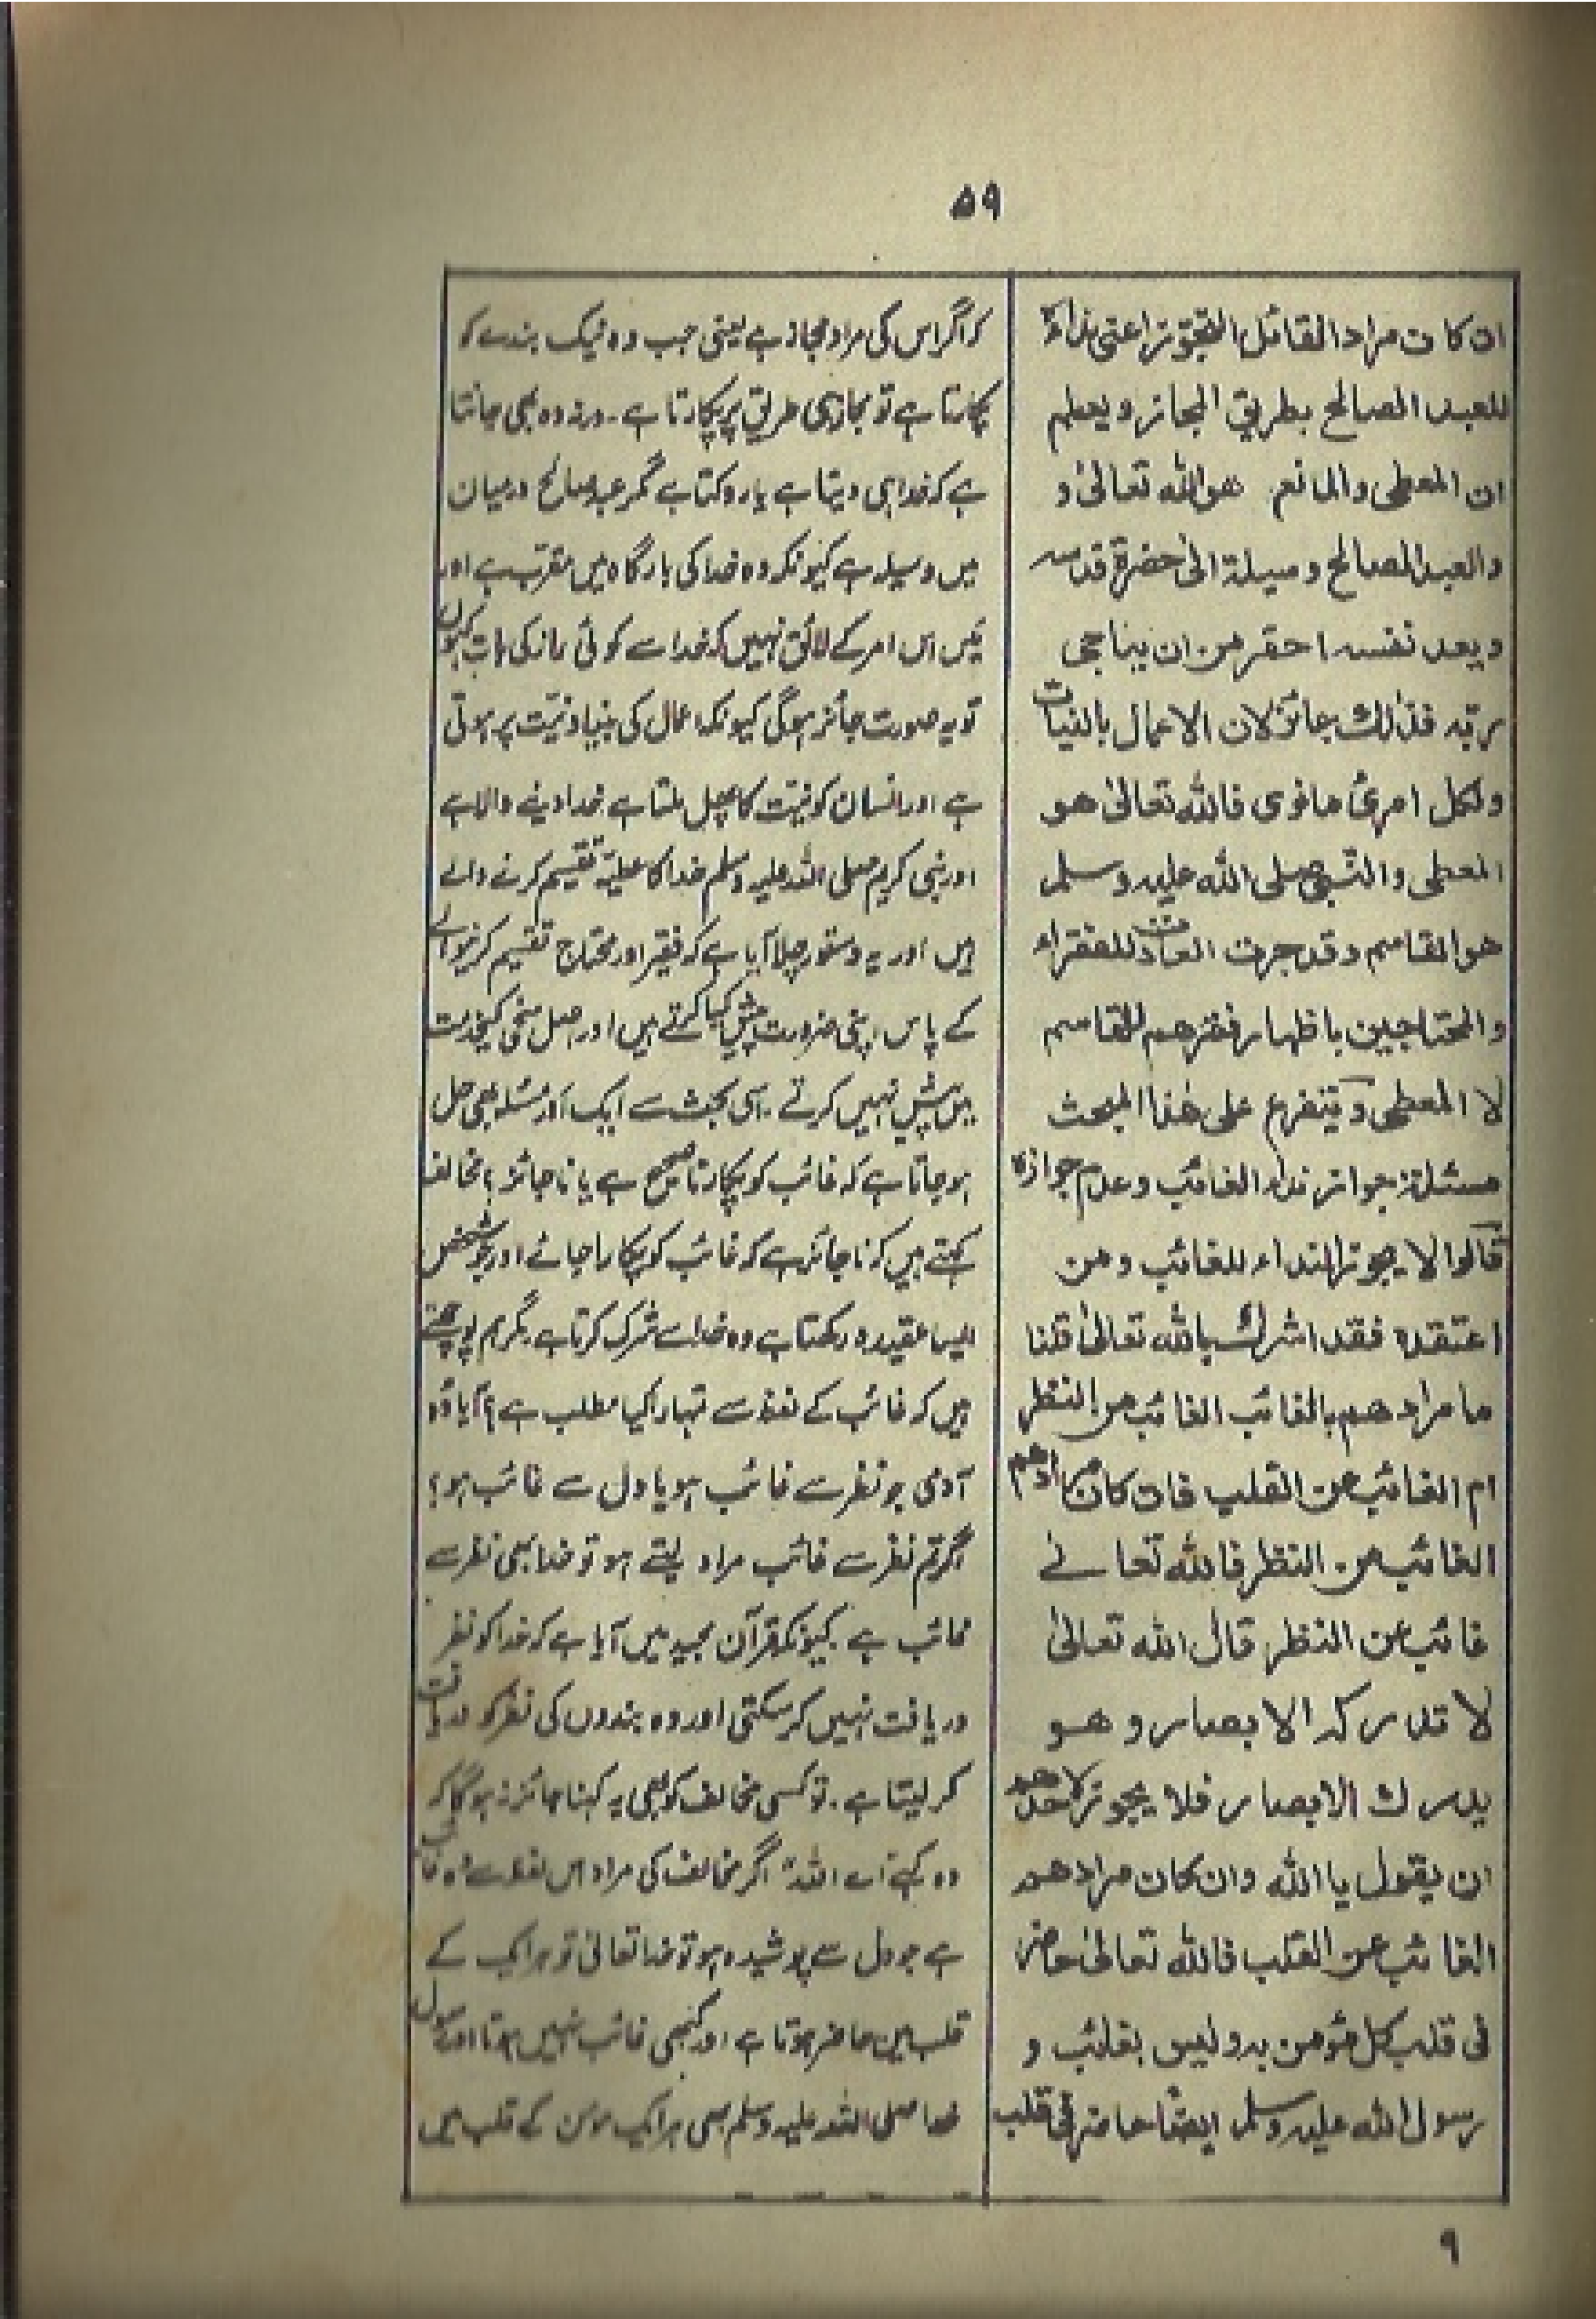 ۵۹
ان كان مراد القائل التجوز اعنی نداءه
للعبد الصالح بطريق المجاز و يعلم
ان المعطی و المانع هو الله تعالیٰ و
و العبد الصالح وسيلة الیٰ حضرة قدسه
و يعد نفسه احقر من ان يناجی
ربه فذلك جائز لان الاعمال بالنيات
و لكل امرئ ما نوی فالله تعالیٰ هو
المعطی و النبی صلی الله عليه وسلم
هو القاسم و قد جرت العادة للفقراء
و المحتاجين باظهار فقرهم للقاسم
لا المعطی و يتفرع علی هذا المبحث
مسئلة جواز نداء الغائب و عدم جوازه
قالوا لا يجوز النداء للغائب و من
اعتقده فقد اشرك بالله تعالیٰ قلنا
ما مرادهم بالغائب الغائب عن النظر
ام الغائب عن القلب فان كان مرادهم
الغائب عن النظر فالله تعالے
غائب عن النظر قال الله تعالیٰ
لا تدركه الابصار و هو
يدرك الابصار فلا يجوز لاحد
ان يقول يا الله و ان كان مرادهم
الغائب عن القلب فالله تعالیٰ حاضر
فی قلب كل مؤمن به و ليس بغائب و
رسول الله عليه وسلم ايضاً حاضر فی قلب
کہ اگر اس کی مراد مجاز ہے یعنی جب وہ نیک بندے کو
پکارتا ہے تو مجازی طریق پر پکارتا ہے۔ ورنہ وہ بھی جانتا
ہے کہ خدا ہی دیتا ہے یا روکتا ہے مگر عبد صالح درمیان
میں وسیلہ ہے کیونکہ وہ خدا کی بارگاہ میں مقرب ہے اور
میں اس امر کے لائق نہیں کہ خدا سے کوئی راز کی بات کہوں
تو یہ صورت جائز ہوگی کیونکہ اعمال کی بنیاد نیت پر ہوتی
ہے اور انسان کو نیت کا پھل ملتا ہے خدا دینے والا ہے
اور نبی کریم صلی اللہ علیہ وسلم خدا کا عطیہ تقسیم کرنے والے
ہیں اور یہ دستور چلا آیا ہے کہ فقیر اور محتاج تقسیم کرنیوالے
کے پاس اپنی ضرورت پیش کیا کرتے ہیں اور اصل سخی کیخدمت
میں پیش نہیں کرتے۔ اسی بحث سے ایک اور مسئلہ بھی حل
ہو جاتا ہے کہ غائب کو پکارنا صحیح ہے یا ناجائز؟ مخالف
کہتے ہیں کہ ناجائز ہے کہ غائب کو پکارا جائے اور جو شخص
ایسا عقیدہ رکھتا ہے وہ خدا سے شرک کرتا ہے۔ مگر ہم پوچھتے
ہیں کہ غائب کے لفظ سے تمہارا کیا مطلب ہے؟ آیا وہ
آدمی جو نظر سے غائب ہو یا دل سے غائب ہو؟
اگر تم نظر سے غائب مراد لیتے ہو تو خدا بھی نظر سے
غائب ہے۔ کیونکہ قرآن مجید میں آیا ہے کہ خدا کو نظر
دریافت نہیں کر سکتی اور وہ بندوں کی نظر کو دریافت
کر لیتا ہے۔ تو کسی مخالف کو بھی یہ کہنا جائز نہ ہوگا کہ
وہ کہے اے اللہ اگر مخالف کی مراد اس لفظ سے وہ غائب
ہے جو دل سے پوشیدہ ہو تو خدا تعالیٰ تو ہر ایک کے
قلب میں حاضر ہوتا ہے اور کبھی غائب نہیں ہوتا اور رسول
خدا صلی اللہ علیہ وسلم بھی ہر ایک مومن کے قلب میں
۹